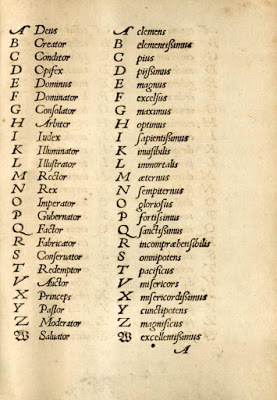 A Deus
B Creator
C Conditor
D Opifex
E Dominus
F Dominator
G Consolator
H Arbiter
I Iudex
K Illuminator
L Illustrator
M Rector
N Rex
O Imperator
P Gubernator
Q Factor
R Fabricator
S Conseruator
T Redemptor
V Auctor
X Princeps
Y Pastor
Z Moderator
W Saluator
A clemens
B clementissimus
C pius
D pijssimus
E magnus
F excelsus
G maximus
H optimus
I sapientissimus
K inuisibilis
L immortalis
M æternus
N sempiternus
O gloriosus
P fortissimus
Q sanctissimus
R incompræhensibilis
S omnipotens
T pacificus
V misericors
X misericordissimus
Y cunctipotens
Z magnificus
W excellentissimus
A